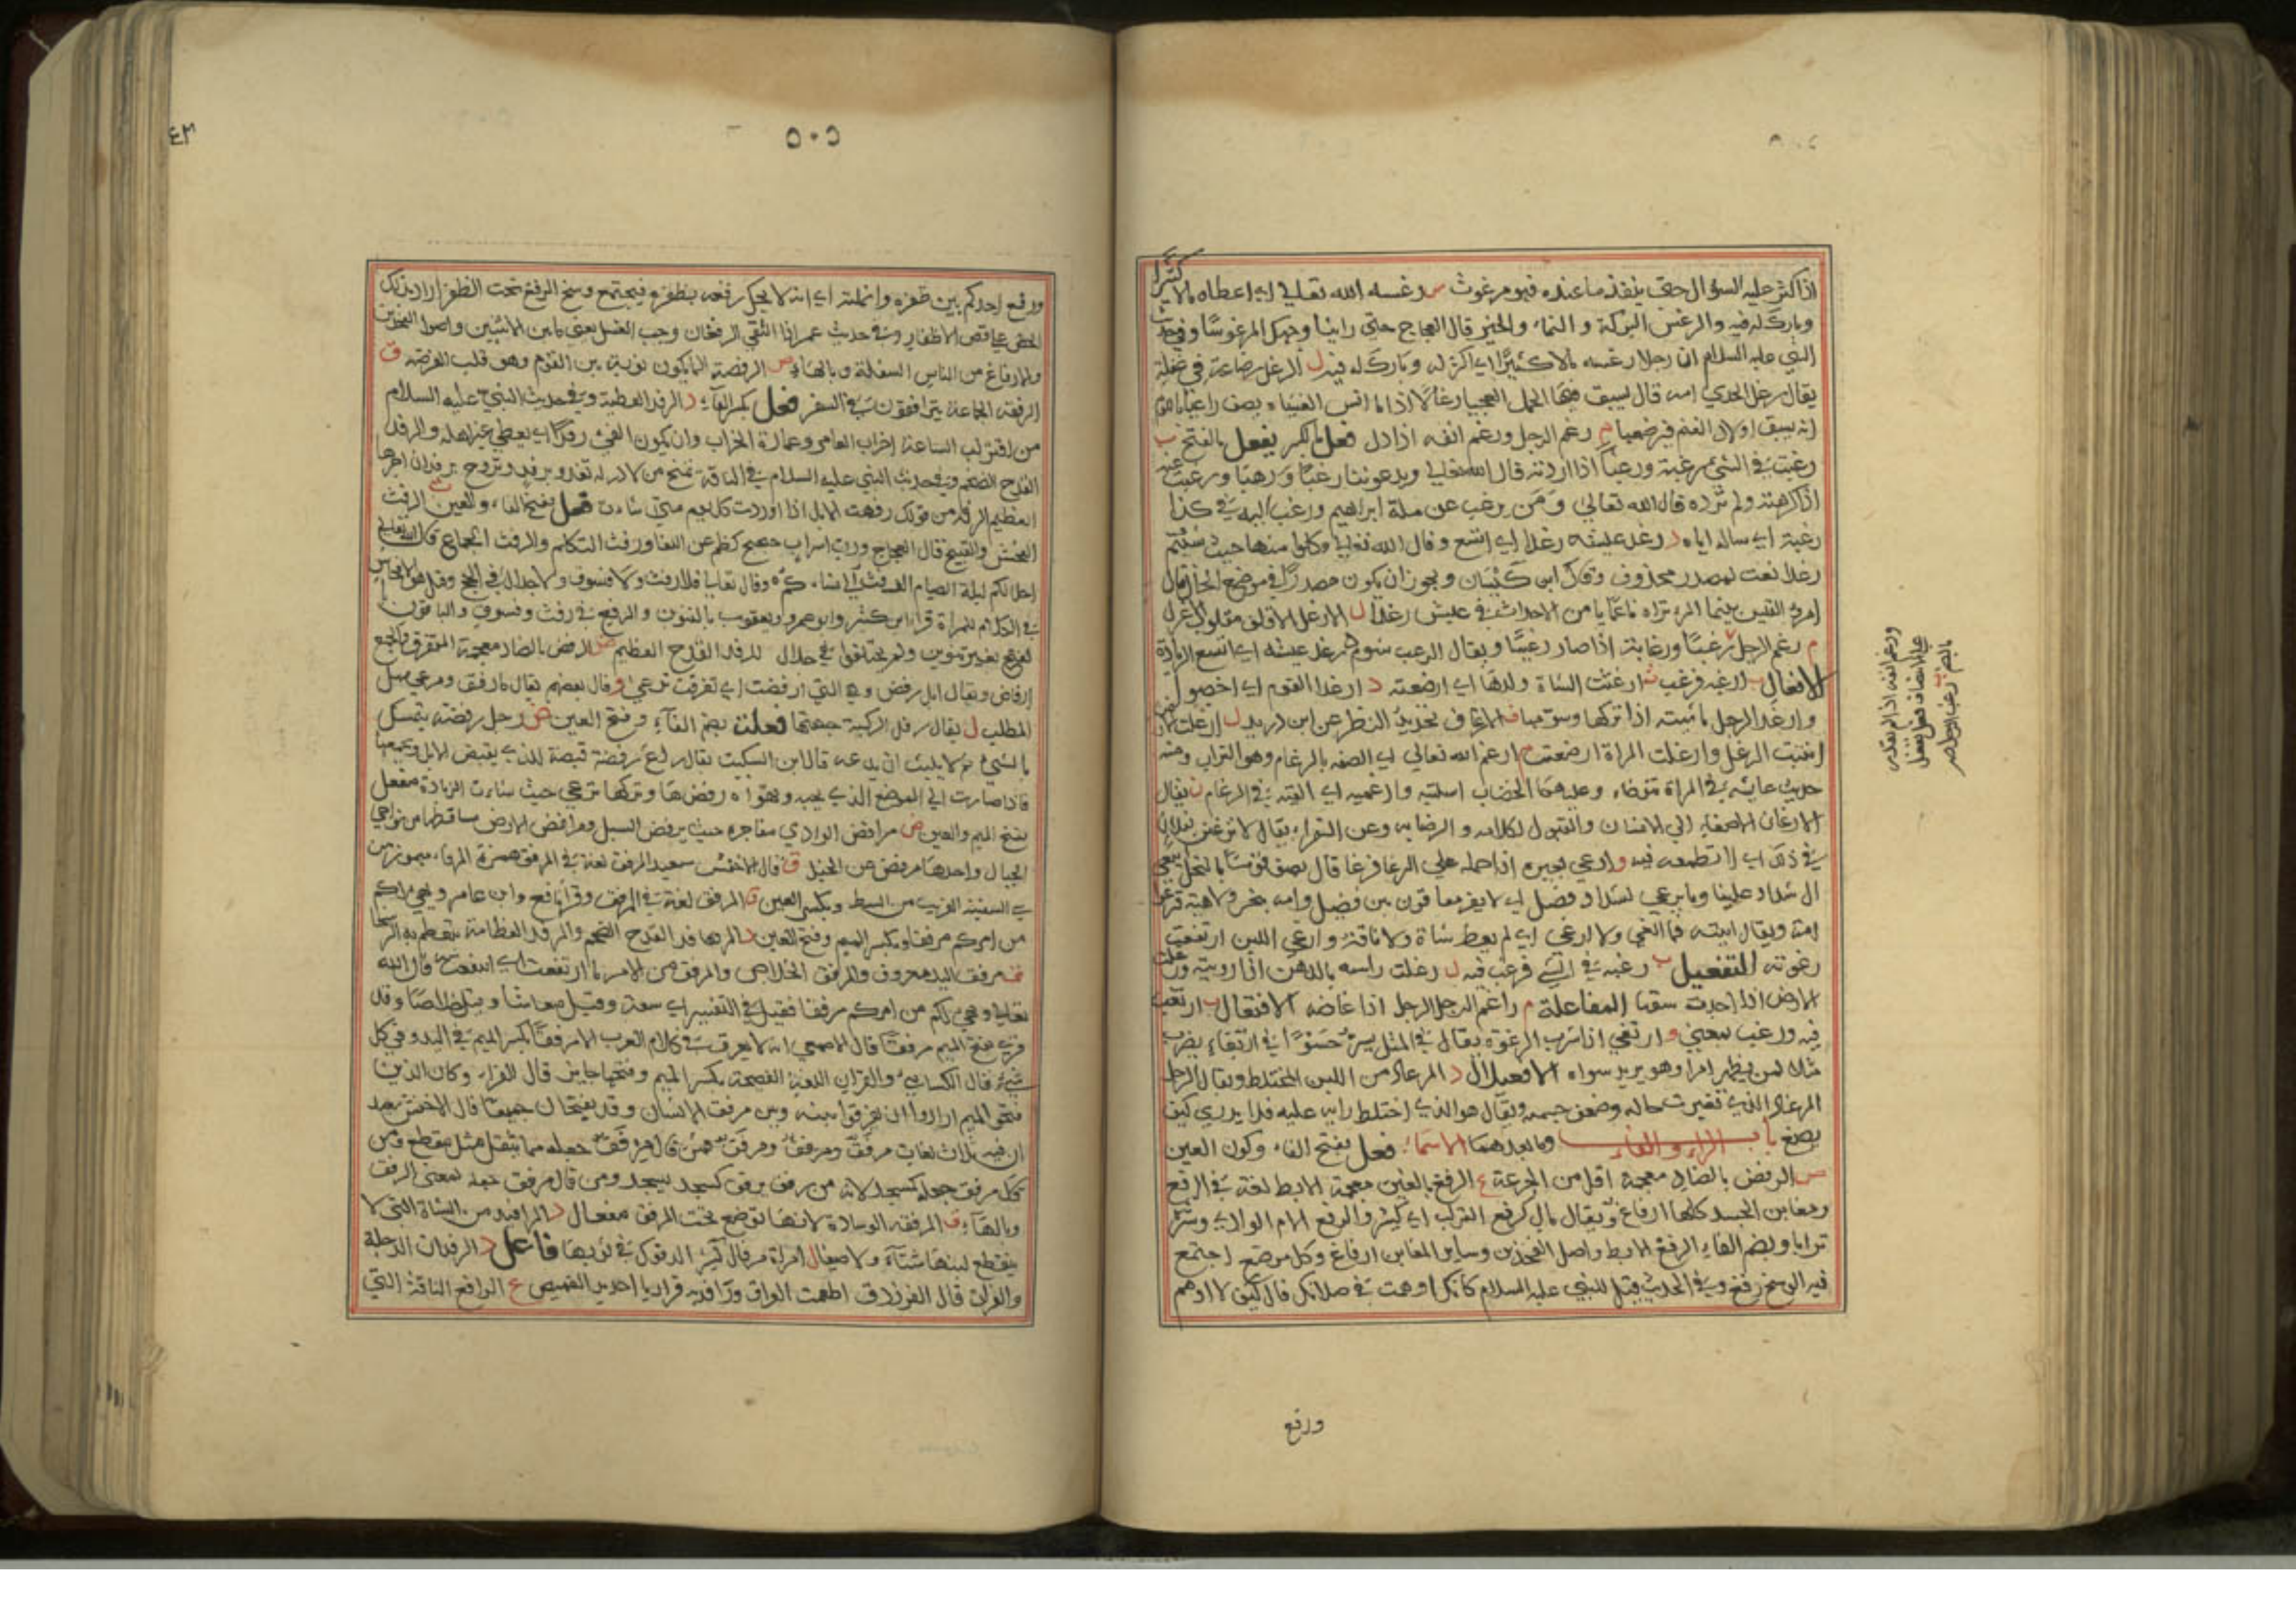 اذا كثر عليه السؤال حتى ينفد ما عنده فهو مرغوث س رغسه الله تعالى اي اعطاه مالا كثيرا
وبارك له فيه والرغس البركة و النماء والخير قال العجاج حتى راينا وجهك المرغوسا وفي حديث
النبي عليه السلام ان رجلا رغسه مالا كثيرا اي اكثر له وبارك له فيه ل الرغل رضاعة في غفلة
يقال رغل الجدي امه قال يسبق فيها الحمل العجيا رغلا اذا ما انس العشيا يصف راعيا
انه يسبق اولاد الغنم فيرضعها م رغم الرجل ورغم انفه اذا ذل فعل بالكسر يفعل بالفتح ب
رغبت في الشيء رغبة ورغبا اذا اردته قال الله تعالى ويدعوننا رغبا ورهبا ورغبت عنه
اذا كرهته ولم ترده قال الله تعالى ومن يرغب عن ملة ابراهيم ورغب اليه في كذا
رغبة اي ساله اياه د رغد عيشه رغدا اي اتسع وقال الله تعالى وكلوا منها حيث شئتم
رغدا نعت لمصدر محذوف وقال ابن كيسان ويجوز ان يكون مصدرا في موضع الحال قال
امرؤ القيس بينما المرء تراه ناعما يامن الاحداث في عيش رغد ل الارغل الاقلف مقلوب اغرل
رغبا ورغابة اذا صار رغيبا ويقال الرغب شوم رغد عيشه اي اتسع الزيادة
الافعال ب ارغبه فرغب ث ارغثت الشاة ولدها اي ارضعته د ارغد القوم اي اخصبوا
وارغد الرجل ماشيته اذا تركها وسومها ف الارغاف تحديد النظر عن ابن دريد ل ارغلت الارض
انبتت الرغل وارغلت المراة ارضعت م ارغم الله تعالى اي الصقه بالرغام وهو التراب ومنه
حديث عايشة في المراة توضا وعليها الخضاب اسلتيه وارغميه اي القيه في الرغام ن يقال
الارغان الاصغاء الى الانسان والقبول لكلامه و الرضا به وعن الفراء يقال لا ترغنن لفلان
في ذلك اي لا تطمعه فيه و ارغى بعيره اذا حمله على الرغا فرغا
امة ويقال اتيته فما اثغى ولا ارغى اي لم يعط شاة ولا ناقة وارغى اللبن ارتفعت
رغوته التفعيل ب رغبه في الشيء فرغب فيه ل رغلت راسه بالدهن اذا رويته ورغلت
المفاعلة م راغم الرجل الرجل اذا غاضه الافتعال ب ارتغب
فيه ورغب بمعنى و ارتغى اذا شرب الرغوة يقال في المثل يسر حسوا في ارتغاء يضرب
مثلا لمن يظهر امرا وهو يريد سواه الافعيلال د المرغاد من اللبن المختلط ويقال الرجل
المرغاد الذي تغيرت حاله وضعف جسمه ويقال هو الذي اختلط رايه عليه فلا يدري كيف
يصنع باب الراء والفاء وما بعدهما الاسماء فعل بفتح الفاء وسكون العين
ض الرفض بالضاد معجمة اقل من الجرعة غ الرفغ بالغين معجمة الابط لغة في الرفغ
ومغابن الجسد كلها ارفاغ ويقال مال كرفغ التراب اي كثير والرفغ الام الوادي وشره
ترابا وبضم الفاء الرفغ الابط واصل الفخذين وساير المغابن ارفاغ وكل موضع اجتمع
فيه الوسخ رفغ وفي الحديث قيل للنبي عليه السلام كانك اوهمت في صلاتك قال كيف لا اوهم
ورفغ
٥٠٥
ورفغ احدكم بين ظفره وانملته اي انه لا يحك رفغه بظفره فيجتمع وسخ الرفغ تحت الظفر اراد بذلك
الحض على قص الاظفار وفي حديث عمر اذا التقى الرفغان وجب الغسل يعني ما بين الانثيين واصول الفخذين
والارفاغ من الناس السفلة وبالهاء ص الرفصة الما يكون نوبة بين القوم وهو قلب الفرصة ق
الرفقة الجماعة يترافقون في السفر فعل بكسر الفاء د الرفد العطية وفي حديث النبي عليه السلام
من اقتراب الساعة اخراب العامر وعمارة الخراب وان يكون الفيء رفدا اي يعطى غير اهله والرفد
القدح الضخم وفي حديث النبي عليه السلام في الناقة تمنح من لا در له تغدو برفد وتروح برفد ان اجرها
العظيم الرفه من قولك رفهت الابل اذا اوردت كل يوم متى شاءت فعل بفتح الفاء والعين ث الرفث
الفحش والقبيح قال العجاج ورب اسراب حجيج كظم عن اللغا ورفث التكلم والرفث الجماع قال الله تعالى
احل لكم ليلة الصيام الرفث الى نسائكم وقال تعالى فلا رفث ولا فسوق ولا جدال في الحج
في الكلام للمراة قرا ابن كثير وابو عمرو ويعقوب بالتنوين والرفع في رفث وفسوق والباقون
بغير تنوين ولم يختلفوا في جدال د الرفد القدح العظيم ض الرفض بالضاد معجمة المتفرق والجمع
ارفاض ويقال ابل رفض وهي التي ارفضت اي تفرقت ترعى ق وقال بعضهم يقال ماء رفق ومرعى سهل
المطلب ل يقال رفل الركية جمتها فعلة بضم الفاء وفتح العين ض رجل رفضة يتمسك
بالشيء ثم لا يلبث ان يدعه قال ابن السكيت يقال راع رفضة قبضة للذي يقبض الابل ويجمعها
فاذا صارت الى الموضع الذي يحبه ويهواه رفضها وتركها ترعى حيث شاءت الزيادة مفعل
بفتح الميم والعين ض مرافض الوادي مفاجره حيث يرفض السيل ومرافض الارض مساقطها من نواحي
الجبال واحدها مرفض عن الخليل ق قال الاخفش سعيد المرفق لغة في المرفق
السفينة القريب من الشط وبكسر العين ق المرفق لغة في المرفق وقرا نافع وابن عامر ويهيئ لكم
من امركم مرفقا وبكسر الميم وفتح العين د المرفد القدح الضخم والمرفد العظامة تتعظم به الرسحاء
ق مرفق اليد معروف والمرفق الخلاص والمرفق من الامر ما ارتفقت اي انتفعت به قال الله
تعالى ويهيئ لكم من امركم مرفقا فقيل في التفسير اي سعة وقيل معاشا
قرئ بفتح الميم مرفقا قال الاصمعي انه لا يعرف في كلام العرب الا مرفقا بكسر الميم في اليد وفي كل
شيء قال الكسائي والفراء اللغة الفصيحة بكسر الميم وفتحها جايز قال الفراء وكان الذين
فتحوا الميم ارادوا ان يفرقوا بينه وبين مرفق الانسان وقد يفتحان جميعا قال الاخفش سعيد
ان فيه ثلاث لغات مرفق ومرفق ومرفق فمن قال مرفقا جعله مما ينتقل مثل مقطع ومن
قال مرفق جعله كمسجد لانه من رفق يرفق كسجد يسجد ومن قال مرفق جعله بمعنى الرفق
وبالهاء ق المرفقة الوسادة لانها توضع تحت المرفق مفعال د المرافيد من الشاة التي لا
ينقطع لبنها شتاء ولا صيفا ل امراة مرفال كثيرة الرفول في ثوبها فاعل د الرافدان الدجلة
والفرات قال الفرزدق اطعمت العراق ورافديه فزاريا احذ يد القميص ع الرافع الناقة التي